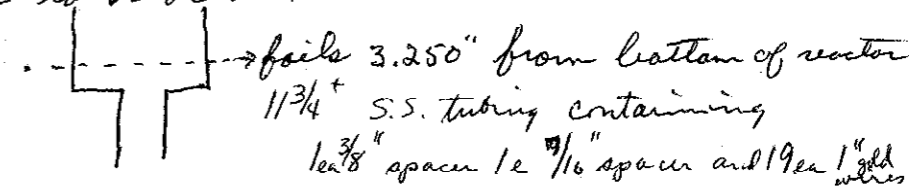 foils 3.250" from bottom of reactor
11 3/4" S.S. tubing containing
1ea 3/8" spacer 1e 9/16" spacer and 19ea 1" gold wires